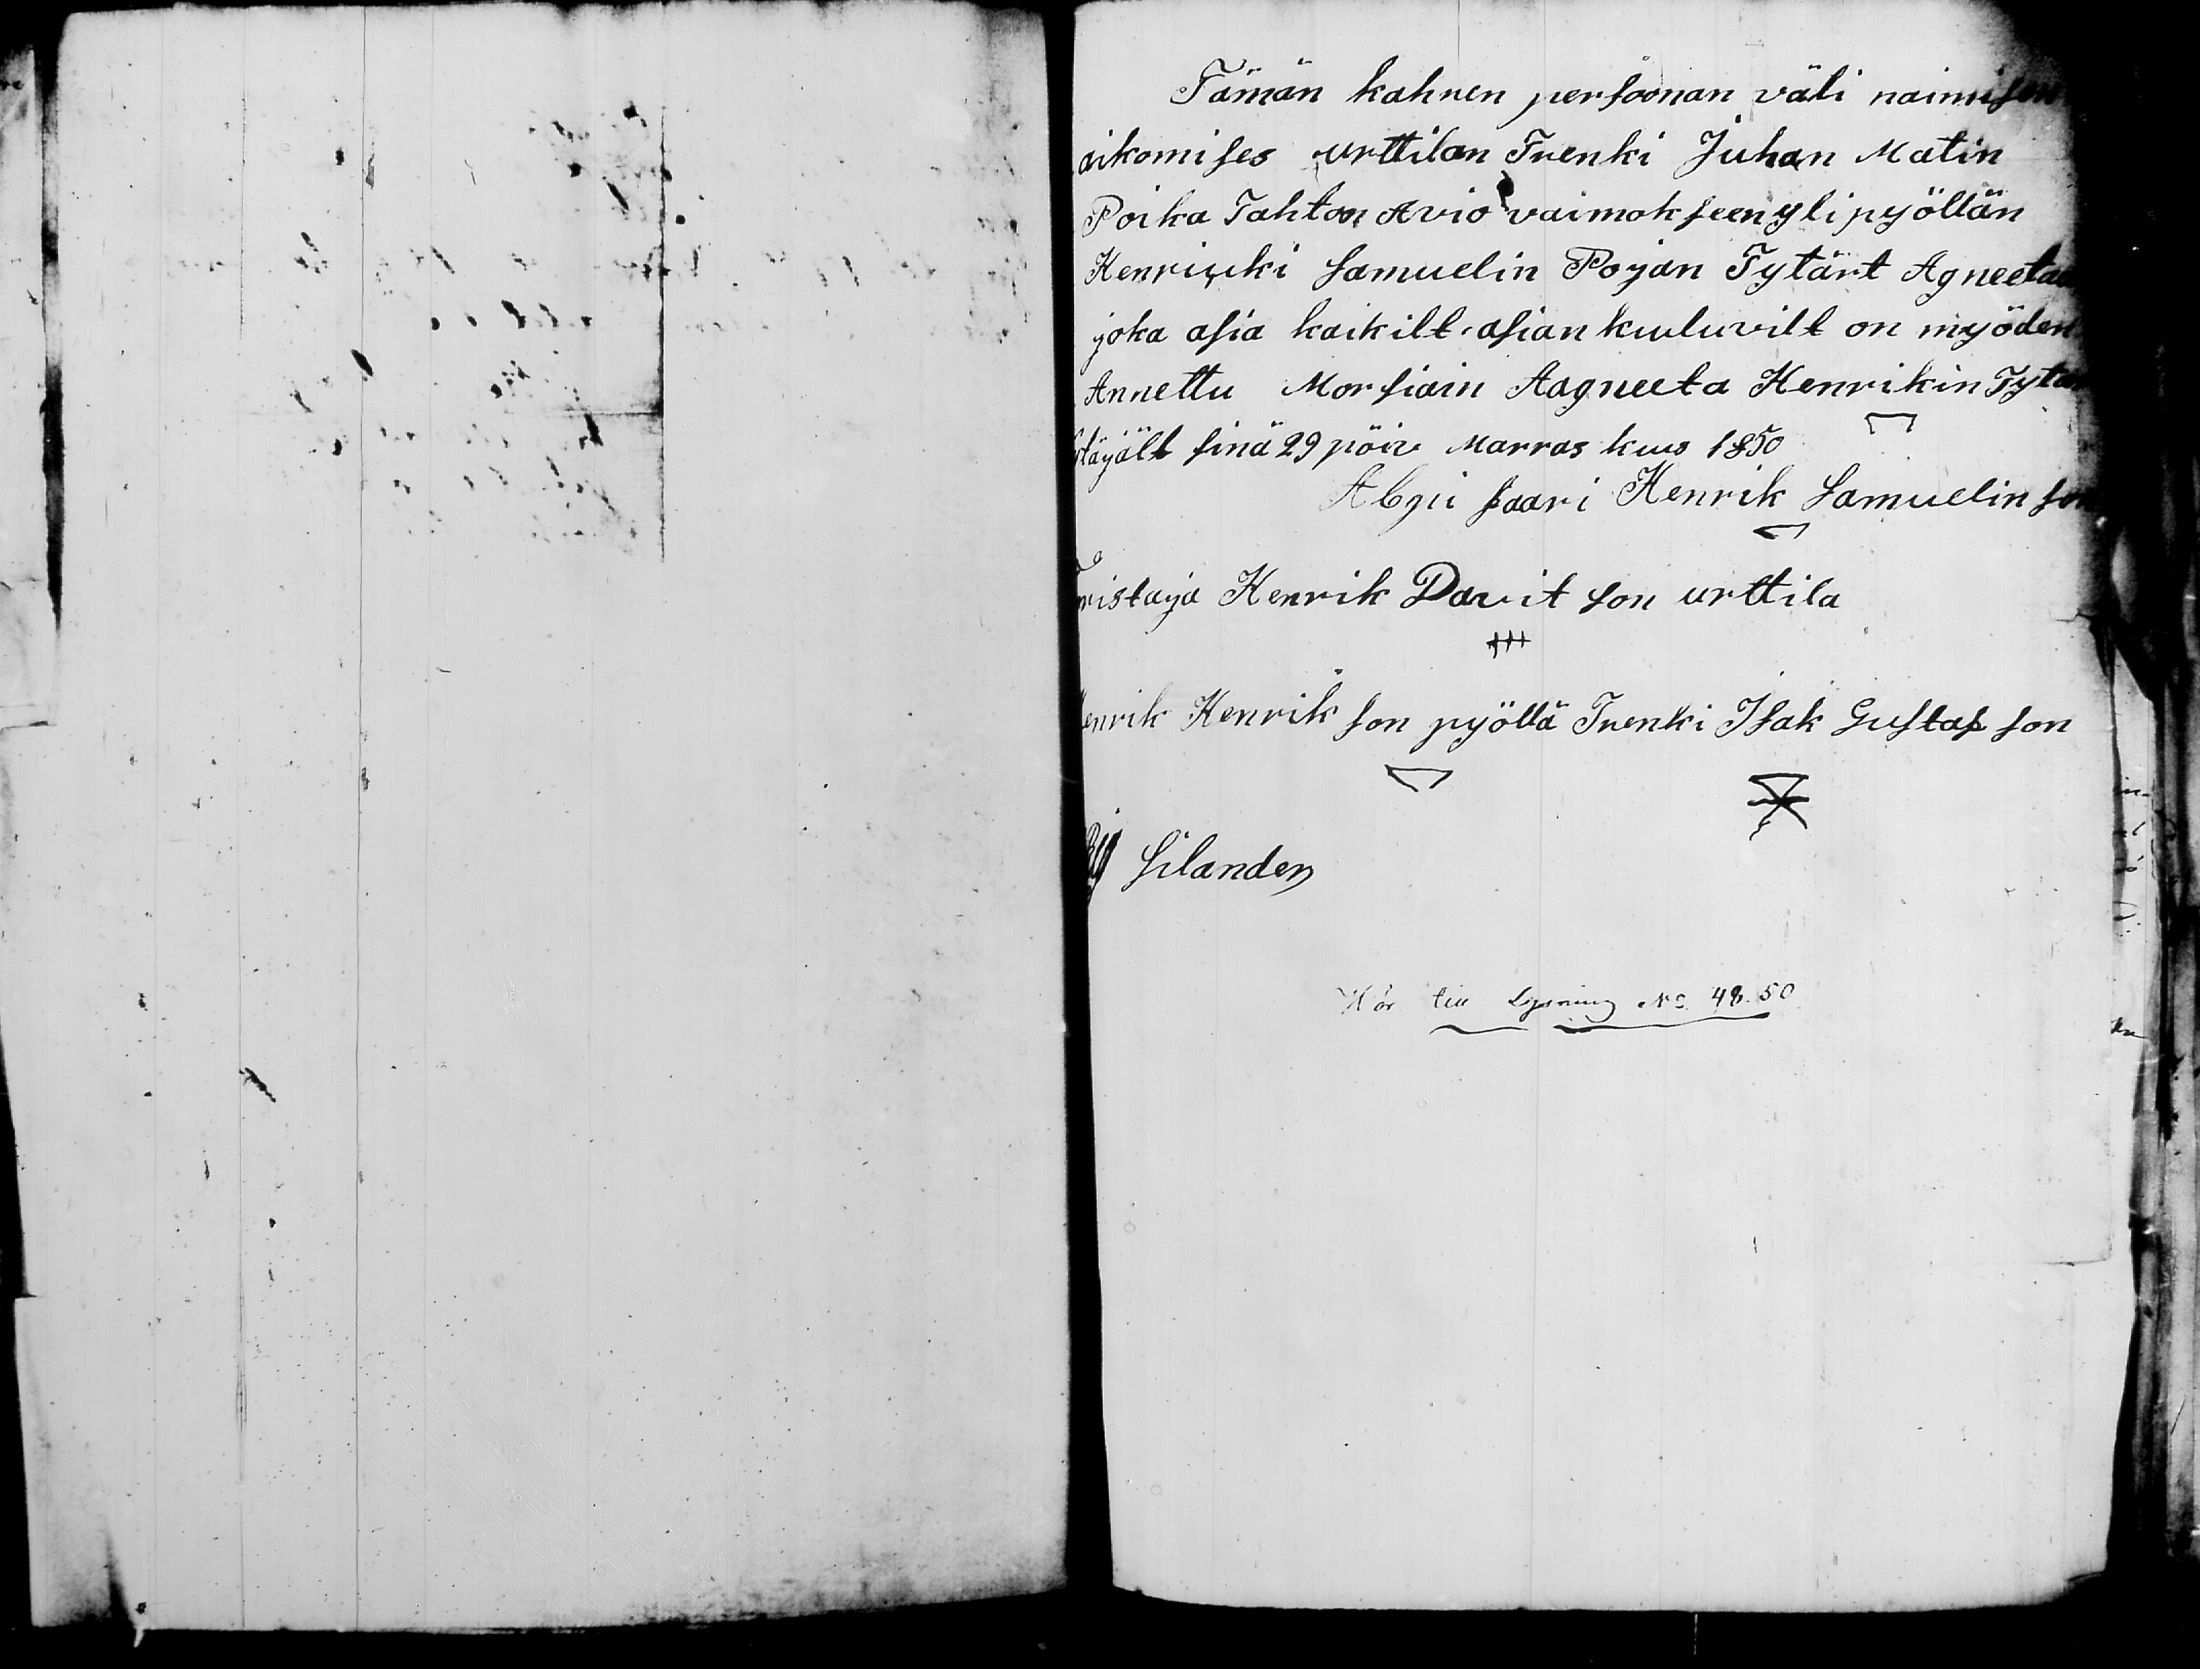 Tämän kahnen persoonan väli naimisen
aikomises urttilan Trenki Juhan Matin
Poika Tahton Avio vaimokseen ylipyöllän
Henricki Samuelin Pojan Tytärt Agneetan
joka asia kaikilt asian kuuluvilt on myöden
Annettu Morsiain Aagneeta Henrikin Tytär
täjält sinä 29 päiv Marras kuus 1850
Henrik Samuelin son
ristaja Henrik Davit son urttila
enrik Henrik son pyöllä Trenki Isak Gustaf son
Silander
Hör till Lysning No 48. 50